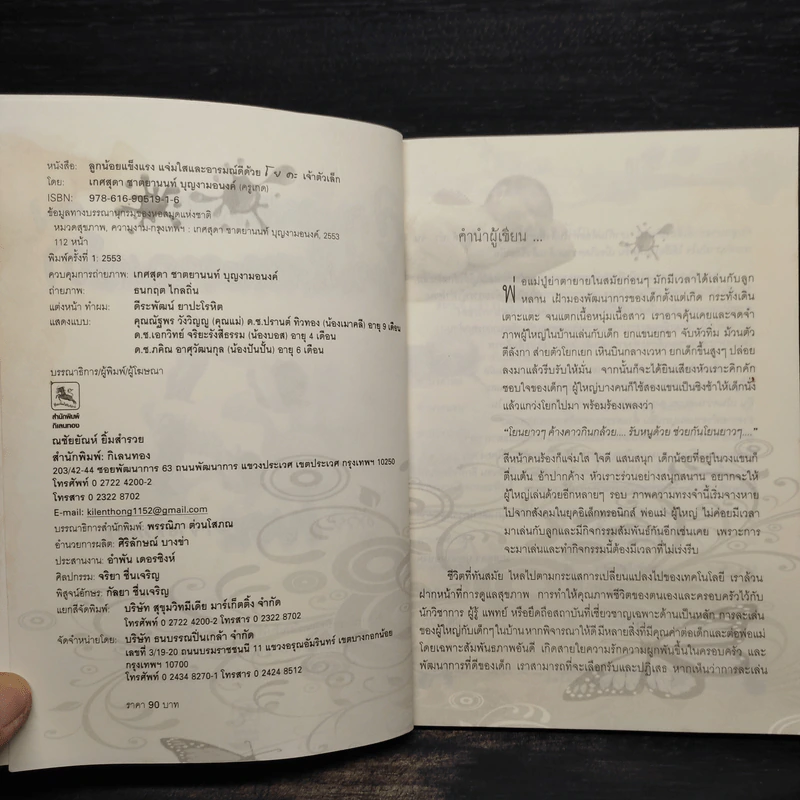 หนังสือ: ลูกน้อยแข็งแรง แจ่มใสและอารมณ์ดีด้วย โยคะ เจ้าตัวเล็ก
โดย: เกศสุดา ชาตยานนท์ บุญงามอนงค์ (ครูเกด)
ISBN: 978-616-90519-1-6
ข้อมูลทางบรรณานุกรมของหอสมุดแห่งชาติ
หมวดสุขภาพ, ความงาม-กรุงเทพฯ : เกศสุดา ชาตยานนท์ บุญงามอนงค์, 2553
112 หน้า
พิมพ์ครั้งที่ 1: 2553
ควบคุมการถ่ายภาพ: เกศสุดา ชาตยานนท์ บุญงามอนงค์
ถ่ายภาพ: ธนกฤต ไกลถิ่น
แต่งหน้า ทำผม: ตีระพัฒน์ ยาปะโรหิต
แสดงแบบ: คุณณัฐพร วังวิญญู (คุณแม่) ด.ช.ปรานต์ ทิวทอง (น้องเมาคลี) อายุ 9 เดือน
ด.ช.เอกวิทย์ จริยะรังสีธรรม (น้องบอส) อายุ 4 เดือน
ด.ช.ภคิณ อาศุวัฒนกุล (น้องปันปั้น) อายุ 6 เดือน
บรรณาธิการ/ผู้พิมพ์/ผู้โฆษณา
สำนักพิมพ์
กิเลนทอง
ณชัยยัณห์ ยิ้มสำรวย
สำนักพิมพ์: กิเลนทอง
203/42-44 ซอยพัฒนาการ 63 ถนนพัฒนาการ แขวงประเวศ เขตประเวศ กรุงเทพฯ 10250
โทรศัพท์ 0 2722 4200-2
โทรสาร 0 2322 8702
E-mail: kilenthong1152@gmail.com
บรรณาธิการสำนักพิมพ์: พรรณิภา ต่วนโสภณ
อำนวยการผลิต: ศิริลักษณ์ บางขำ
ประสานงาน: อำพัน เดอรซิงห์
ศิลปกรรม: จริยา ชื่นเจริญ
พิสูจน์อักษร: กัลยา ชื่นเจริญ
แยกสีจัดพิมพ์: บริษัท สุขุมวิทมีเดีย มาร์เก็ตติ้ง จำกัด
โทรศัพท์ 0 2722 4200-2 โทรสาร 0 2322 8702
จัดจำหน่ายโดย: บริษัท ธนบรรณปิ่นเกล้า จำกัด
เลขที่ 3/19-20 ถนนบรมราชชนนี 11 แขวงอรุณอัมรินทร์ เขตบางกอกน้อย
กรุงเทพฯ 10700
โทรศัพท์ 0 2434 8270-1 โทรสาร 0 2424 8512
ราคา 90 บาท
คำนำผู้เขียน ...
พ่อแม่ปู่ย่าตายายในสมัยก่อนๆ มักมีเวลาได้เล่นกับลูก
หลาน เฝ้ามองพัฒนาการของเด็กตั้งแต่เกิด กระทั่งเดิน
เตาะแตะ จนแตกเนื้อหนุ่มเนื้อสาว เราอาจคุ้นเคยและจดจำ
ภาพผู้ใหญ่ในบ้านเล่นกับเด็ก ยกแขนยกขา จับหัวทิ่ม ม้วนตัว
ตีลังกา ส่ายตัวโยกเยก เหินบินกลางเวหา ยกเด็กขึ้นสูงๆ ปล่อย
ลงมาแล้วรีบรับให้มั่น จากนั้นก็จะได้ยินเสียงหัวเราะคิกคัก
ชอบใจของเด็กๆ ผู้ใหญ่บางคนก็ใช้สองแขนเป็นชิงช้าให้เด็กนั่ง
แล้วแกว่งโยกไปมา พร้อมร้องเพลงว่า
"โยนยาวๆ ค้างคาวกินกล้วย.... รับหนูด้วย ช่วยกันโยนยาวๆ...."
สีหน้าคนร้องก็แจ่มใส ใจดี แสนสนุก เด็กน้อยที่อยู่ในวงแขนก็
ตื่นเต้น อ้าปากค้าง หัวเราะร่วนอย่างสนุกสนาน อยากจะให้
ผู้ใหญ่เล่นด้วยอีกหลายๆ รอบ ภาพความทรงจำนี้เริ่มจางหาย
ไปจากสังคมในยุคอิเล็กทรอนิกส์ พ่อแม่ ผู้ใหญ่ ไม่ค่อยมีเวลา
มาเล่นกับลูกและมีกิจกรรมสัมพันธ์กันอีกเช่นเคย เพราะการ
จะมาเล่นและทำกิจกรรมนี้ต้องมีเวลาที่ไม่เร่งรีบ
ชีวิตที่ทันสมัย ไหลไปตามกระแสการเปลี่ยนแปลงไปของเทคโนโลยี เราล้วน
ฝากหน้าที่การดูแลสุขภาพ การทำให้คุณภาพชีวิตของตนเองและครอบครัวไว้กับ
นักวิชาการ ผู้รู้ แพทย์ หรือยึดถือสถาบันที่เชี่ยวชาญเฉพาะด้านเป็นหลัก การละเล่น
ของผู้ใหญ่กับเด็กๆ ในบ้านหากพิจารณาให้ดีมีหลายสิ่งที่มีคุณค่าต่อเด็กและต่อพ่อแม่
โดยเฉพาะสัมพันธภาพอันดี เกิดสายใยความรักความผูกพันขึ้นในครอบครัว และ
พัฒนาการที่ดีของเด็ก เราสามารถที่จะเลือกรับและปฏิเสธ หากเห็นว่าการละเล่น